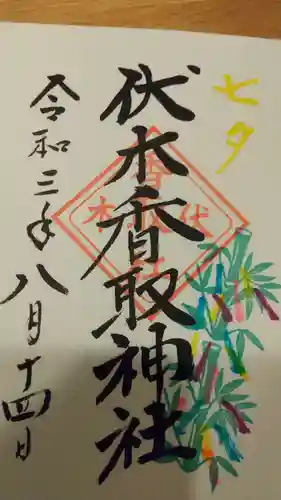 七夕
伏木香取神社
令和三年八月十四日